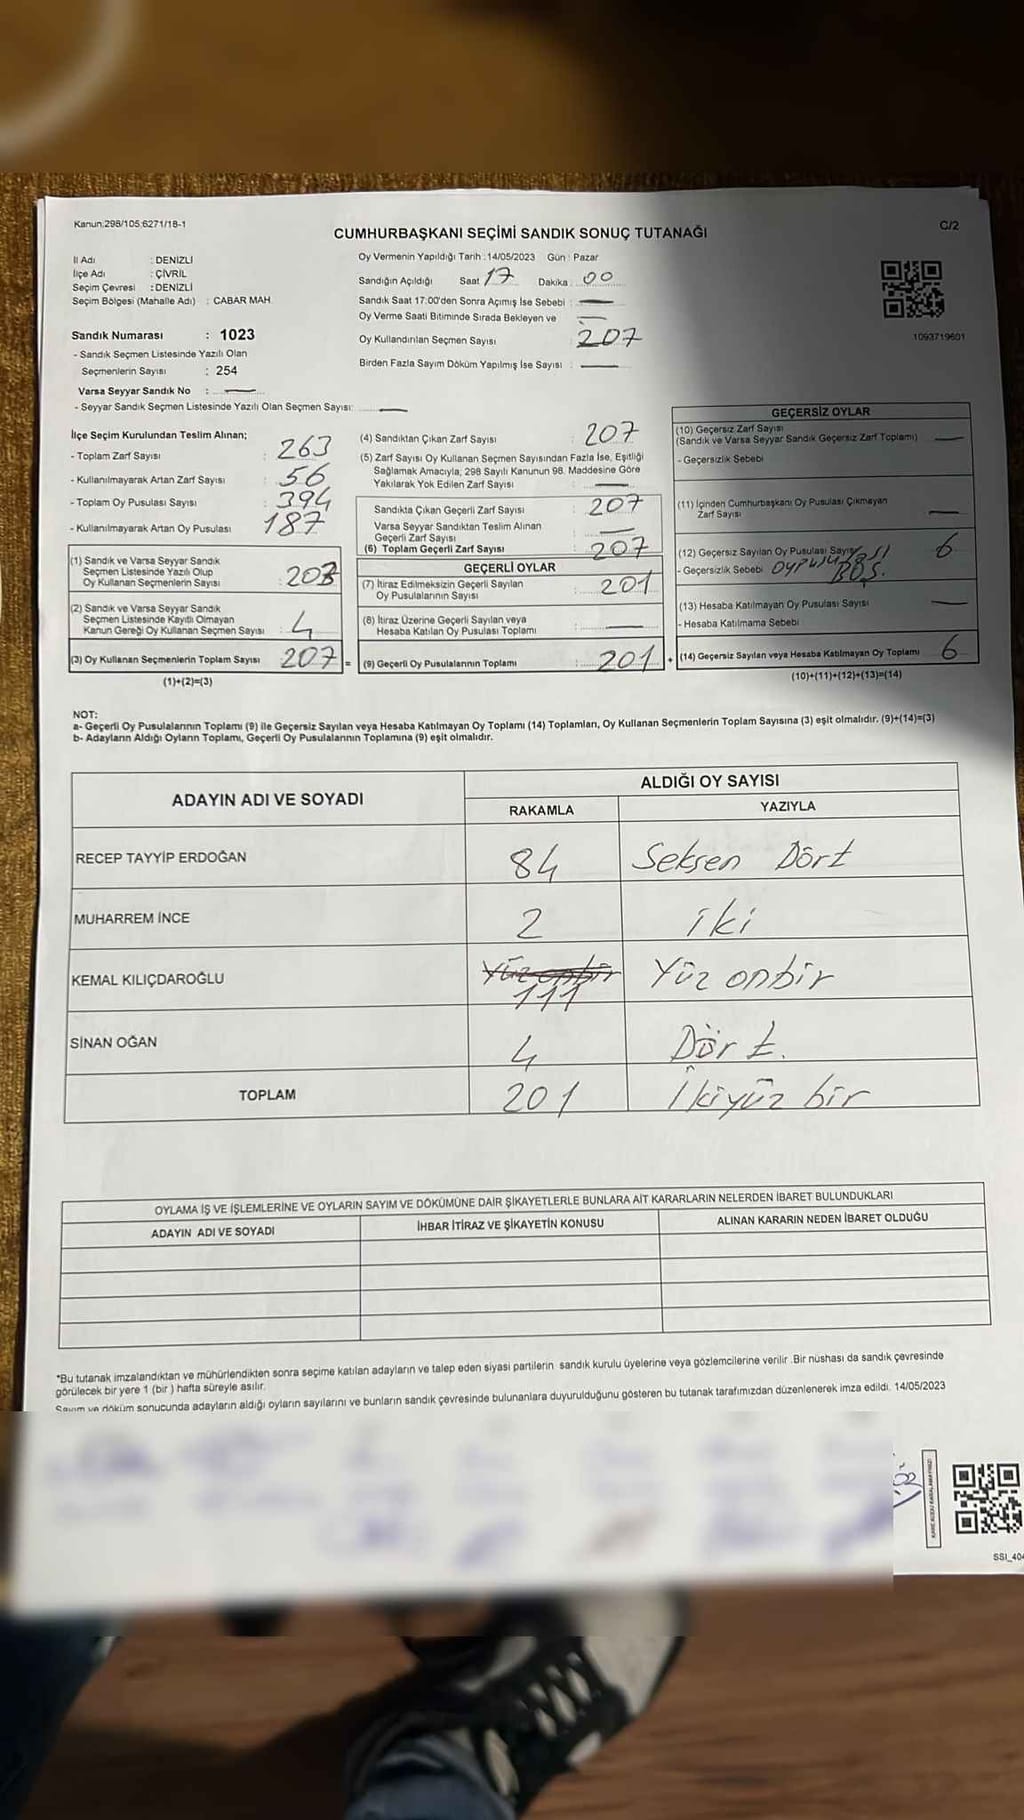 Kanun:298/105;6271/18-1
C/2
CUMHURBAŞKANI SEÇİMİ SANDIK SONUÇ TUTANAĞI
İl Adı : DENİZLİ
İlçe Adı : ÇİVRİL
Seçim Çevresi : DENİZLİ
Seçim Bölgesi (Mahalle Adı) : CABAR MAH.
Oy Vermenin Yapıldığı Tarih : 14/05/2023 Gün : Pazar
Sandığın Açıldığı Saat 17 Dakika : 00
Sandık Saat 17:00'den Sonra Açımış İse Sebebi :
Oy Verme Saati Bitiminde Sırada Bekleyen ve
Oy Kullandırılan Seçmen Sayısı : 207
Birden Fazla Sayım Döküm Yapılmış İse Sayısı :
1093719601
Sandık Numarası : 1023
- Sandık Seçmen Listesinde Yazılı Olan
Seçmenlerin Sayısı : 254
Varsa Seyyar Sandık No :
- Seyyar Sandık Seçmen Listesinde Yazılı Olan Seçmen Sayısı:
İlçe Seçim Kurulundan Teslim Alınan;
- Toplam Zarf Sayısı : 263
- Kullanılmayarak Artan Zarf Sayısı : 56
- Toplam Oy Pusulası Sayısı : 394
- Kullanılmayarak Artan Oy Pusulası : 187
(1) Sandık ve Varsa Seyyar Sandık
Seçmen Listesinde Yazılı Olup
Oy Kullanan Seçmenlerin Sayısı : 203
(2) Sandık ve Varsa Seyyar Sandık
Seçmen Listesinde Kayıtlı Olmayan
Kanun Gereği Oy Kullanan Seçmen Sayısı : 4
(3) Oy Kullanan Seçmenlerin Toplam Sayısı : 207
(1)+(2)=(3)
(4) Sandıktan Çıkan Zarf Sayısı : 207
(5) Zarf Sayısı Oy Kullanan Seçmen Sayısından Fazla İse, Eşitliği
Sağlamak Amacıyla; 298 Sayılı Kanunun 98. Maddesine Göre
Yakılarak Yok Edilen Zarf Sayısı :
Sandıkta Çıkan Geçerli Zarf Sayısı : 207
Varsa Seyyar Sandıktan Teslim Alınan
Geçerli Zarf Sayısı :
(6) Toplam Geçerli Zarf Sayısı : 207
GEÇERLİ OYLAR
(7) İtiraz Edilmeksizin Geçerli Sayılan
Oy Pusulalarının Sayısı : 201
(8) İtiraz Üzerine Geçerli Sayılan veya
Hesaba Katılan Oy Pusulası Toplamı :
= (9) Geçerli Oy Pusulalarının Toplamı : 201 +
GEÇERSİZ OYLAR
(10) Geçersiz Zarf Sayısı
(Sandık ve Varsa Seyyar Sandık Geçersiz Zarf Toplamı)
- Geçersizlik Sebebi
(11) İçinden Cumhurbaşkanı Oy Pusulası Çıkmayan
Zarf Sayısı
(12) Geçersiz Sayılan Oy Pusulası Sayısı 6
- Geçersizlik Sebebi OYPUSULASI
BOŞ.
(13) Hesaba Katılmayan Oy Pusulası Sayısı
- Hesaba Katılmama Sebebi
(14) Geçersiz Sayılan veya Hesaba Katılmayan Oy Toplamı 6
(10)+(11)+(12)+(13)=(14)
NOT:
a- Geçerli Oy Pusulalarının Toplamı (9) ile Geçersiz Sayılan veya Hesaba Katılmayan Oy Toplamı (14) Toplamları, Oy Kullanan Seçmenlerin Toplam Sayısına (3) eşit olmalıdır. (9)+(14)=(3)
b- Adayların Aldığı Oyların Toplamı, Geçerli Oy Pusulalarının Toplamına (9) eşit olmalıdır.
ADAYIN ADI VE SOYADI
ALDIĞI OY SAYISI
RAKAMLA YAZIYLA
RECEP TAYYİP ERDOĞAN 84 Seksen Dört
MUHARREM İNCE 2 iki
KEMAL KILIÇDAROĞLU Yüz onbir 111 Yüz onbir
SİNAN OĞAN 4 Dört.
TOPLAM 201 İkiyüz bir
OYLAMA İŞ VE İŞLEMLERİNE VE OYLARIN SAYIM VE DÖKÜMÜNE DAİR ŞİKAYETLERLE BUNLARA AİT KARARLARIN NELERDEN İBARET BULUNDUKLARI
ADAYIN ADI VE SOYADI İHBAR İTİRAZ VE ŞİKAYETİN KONUSU ALINAN KARARIN NEDEN İBARET OLDUĞU
*Bu tutanak imzalandıktan ve mühürlendikten sonra seçime katılan adayların ve talep eden siyasi partilerin sandık kurulu üyelerine veya gözlemcilerine verilir .Bir nüshası da sandık çevresinde
görülecek bir yere 1 (bir ) hafta süreyle asılır.
Sayım ve döküm sonucunda adayların aldığı oyların sayılarını ve bunların sandık çevresinde bulunanlara duyurulduğunu gösteren bu tutanak tarafımızdan düzenlenerek imza edildi. 14/05/2023
SSI_404